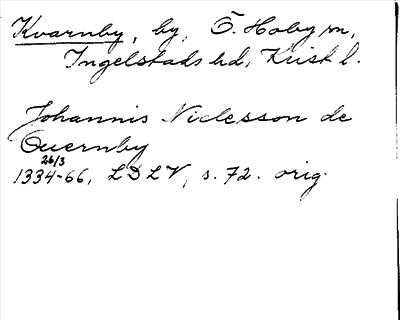 Kvarnby, by, Ö. Hoby sn,
Ingelstads hd, Krist l.
Johannis Niclesson de
Quernby
26/3
1334-66, LDLV, s. 72. orig.